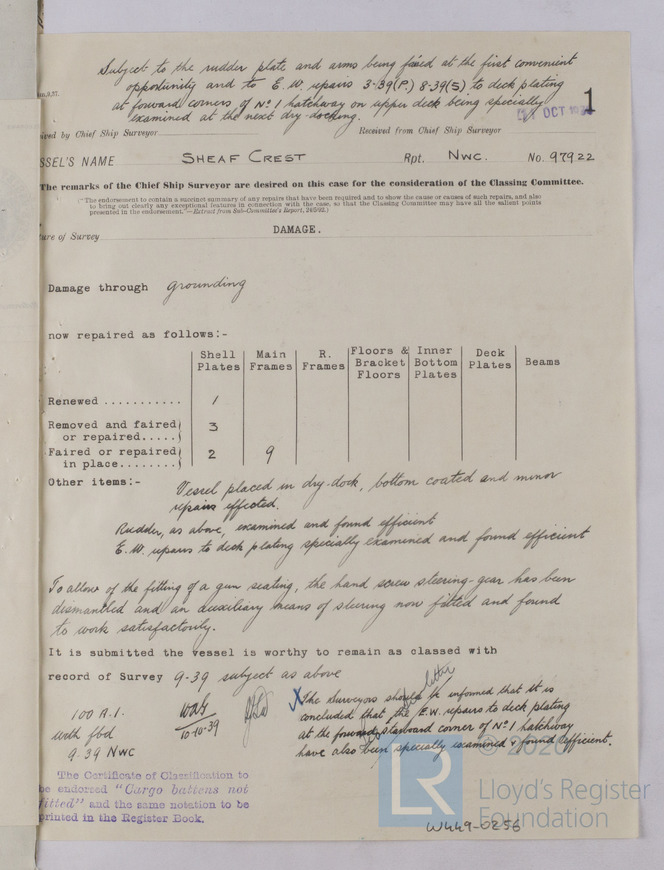 Subject to the rudder plate and arms being faired at the first convenient
opportunity and to E.W. repairs 3-39(P.) 8-39(S) to deck plating
at forward corners of No 1 hatchway on upper deck being specially
examined at the next dry-docking.
OCT
1
ived by Chief Ship Surveyor
Received from Chief Ship Surveyor
SSEL'S NAME SHEAF CREST Rpt. NWC. No. 97922
The remarks of the Chief Ship Surveyor are desired on this case for the consideration of the Classing Committee.
("The endorsement to contain a succinct summary of any repairs that have been required and to show the cause or causes of such repairs, and also
to bring out clearly any exceptional features in connection with the case, so that the Classing Committee may have all the salient points
presented in the endorsement."—Extract from Sub-Committee's Report,
ture of Survey DAMAGE.
Damage through grounding
now repaired as follows:-
Shell Plates
Main Frames
R. Frames
Floors & Bracket Floors
Inner Bottom Plates
Deck Plates
Beams
Renewed ........... 1
Removed and faired
or repaired..... 3
Faired or repaired
in place........ 2 9
Other items:- Vessel placed in dry-dock, bottom coated and minor
repairs effected.
Rudder, as above, examined and found efficient
E.W. repairs to deck plating specially examined and found efficient
To allow of the fitting of a gun seating, the hand screw steering-gear has been
dismantled and an auxiliary means of steering now fitted and found
to work satisfactorily.
It is submitted the vessel is worthy to remain as classed with
record of Survey 9-39 subject as above
letter
100 A.1.
with fbd
9.39 NWC
10-10-39
X The Surveyors should be informed that it is
concluded that the E.W. repairs to deck plating
at the forward starboard corner of No 1 hatchway
have also been specially examined & found efficient.
The Certificate of Classification to
be endorsed "Cargo battens not
fitted" and the same notation to be
printed in the Register Book.
© 2020
LR
Lloyd's Register
Foundation
W449-0256